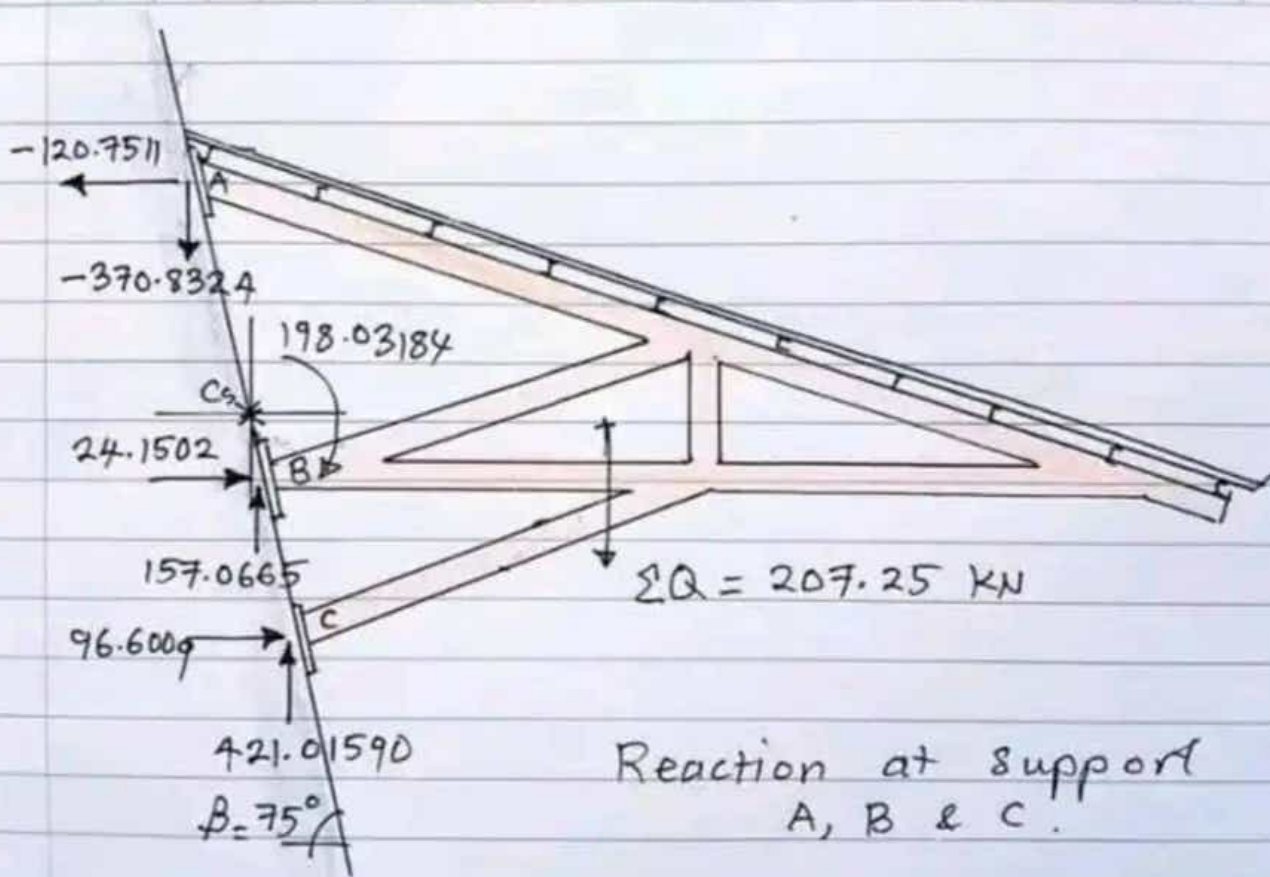 -120.7511
A
-370.8324
198.03184
CG
24.1502
B
157.0665
ΣQ = 207.25 KN
96.6009
C
421.01590
β=75°
Reaction at support
A, B & C.